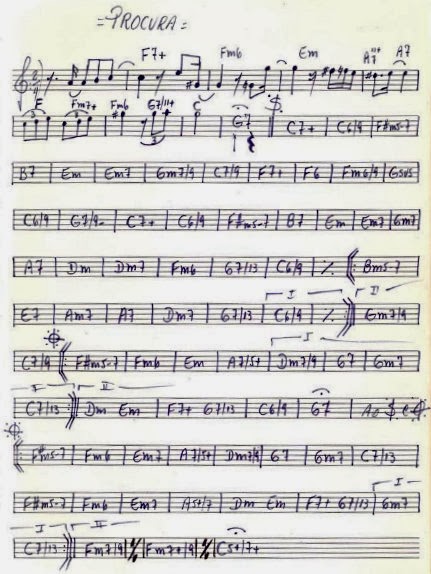 = PROCURA =
F7+ Fm6 Em A7 11+ A7
F Fm7+ Fm6 G7/11+ C G7 C7+ C6/9 F#m5-7
B7 Em Em7 Gm7/9 C7/9 F7+ F6 Fm6/9 Gsus
C6/9 G7/9- C7+ C6/9 F#m5-7 B7 Em Em7 Gm7
A7 Dm Dm7 Fm6 G7/13 C6/9 ٪ Bm5-7
I II
E7 Am7 A7 Dm7 G7/13 C6/9 ٪ Gm7/9
I
C7/9 F#m5-7 Fm6 Em A7/5+ Dm7/9 G7 Gm7
I II
C7/13 Dm Em F7+ G7/13 C6/9 G7 Ao
F#m5-7 Fm6 Em7 A7/5+ Dm7/9 G7 Gm7 C7/13
I
F#m5-7 Fm6 Em7 A5+/7 Dm Em F7+ G7/13 Gm7
I II
C7/13 Fm7/9 ٪ Fm7+/9 ٪ C5+/7+